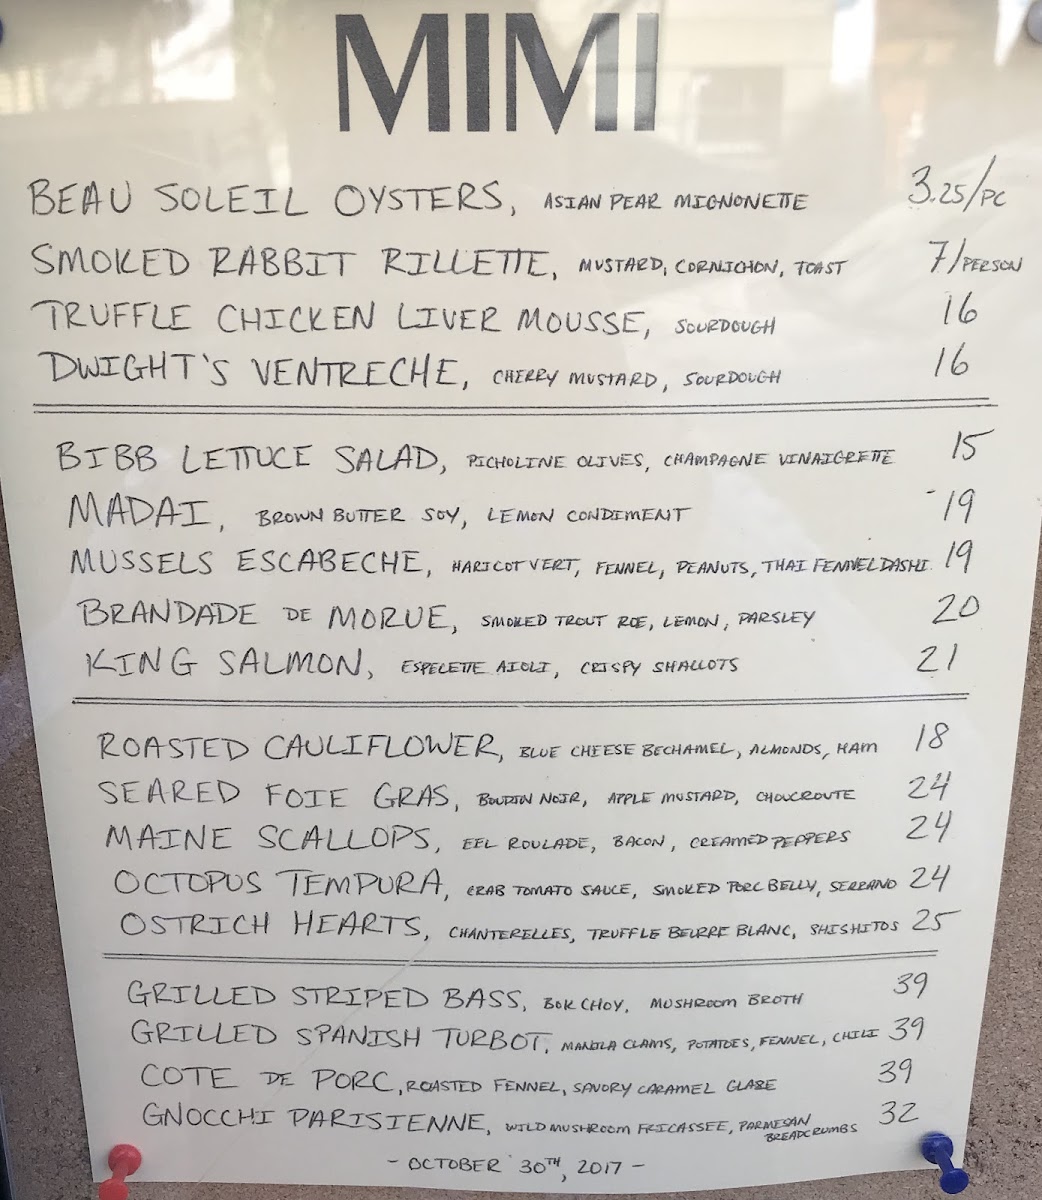 MIMI
BEAU SOLEIL OYSTERS, ASIAN PEAR MIGNONETTE 3.25/PC
SMOKED RABBIT RILLETTE, MUSTARD, CORNICHON, TOAST 7/PERSON
TRUFFLE CHICKEN LIVER MOUSSE, SOURDOUGH 16
DWIGHT'S VENTRECHE, CHERRY MUSTARD, SOURDOUGH 16
BIBB LETTUCE SALAD, PICHOLINE OLIVES, CHAMPAGNE VINAIGRETTE 15
MADAI, BROWN BUTTER SOY, LEMON CONDIMENT 19
MUSSELS ESCABECHE, HARICOT VERT, FENNEL, PEANUTS, THAI FENNEL DASHI 19
BRANDADE DE MORUE, SMOKED TROUT ROE, LEMON, PARSLEY 20
KING SALMON, ESPELETTE AIOLI, CRISPY SHALLOTS 21
ROASTED CAULIFLOWER, BLUE CHEESE BECHAMEL, ALMONDS, HAM 18
SEARED FOIE GRAS, BOUDIN NOIR, APPLE MUSTARD, CHOUCROUTE 24
MAINE SCALLOPS, EEL ROULADE, BACON, CREAMED PEPPERS 24
OCTOPUS TEMPURA, CRAB TOMATO SAUCE, SMOKED PORC BELLY, SERRANO 24
OSTRICH HEARTS, CHANTERELLES, TRUFFLE BEURRE BLANC, SHISHITOS 25
GRILLED STRIPED BASS, BOK CHOY, MUSHROOM BROTH 39
GRILLED SPANISH TURBOT, MANILA CLAMS, POTATOES, FENNEL, CHILI 39
COTE DE PORC, ROASTED FENNEL, SAVORY CARAMEL GLAZE 39
GNOCCHI PARISIENNE, WILD MUSHROOM FRICASSEE, PARMESAN BREADCRUMBS 32
- OCTOBER 30TH, 2017 -